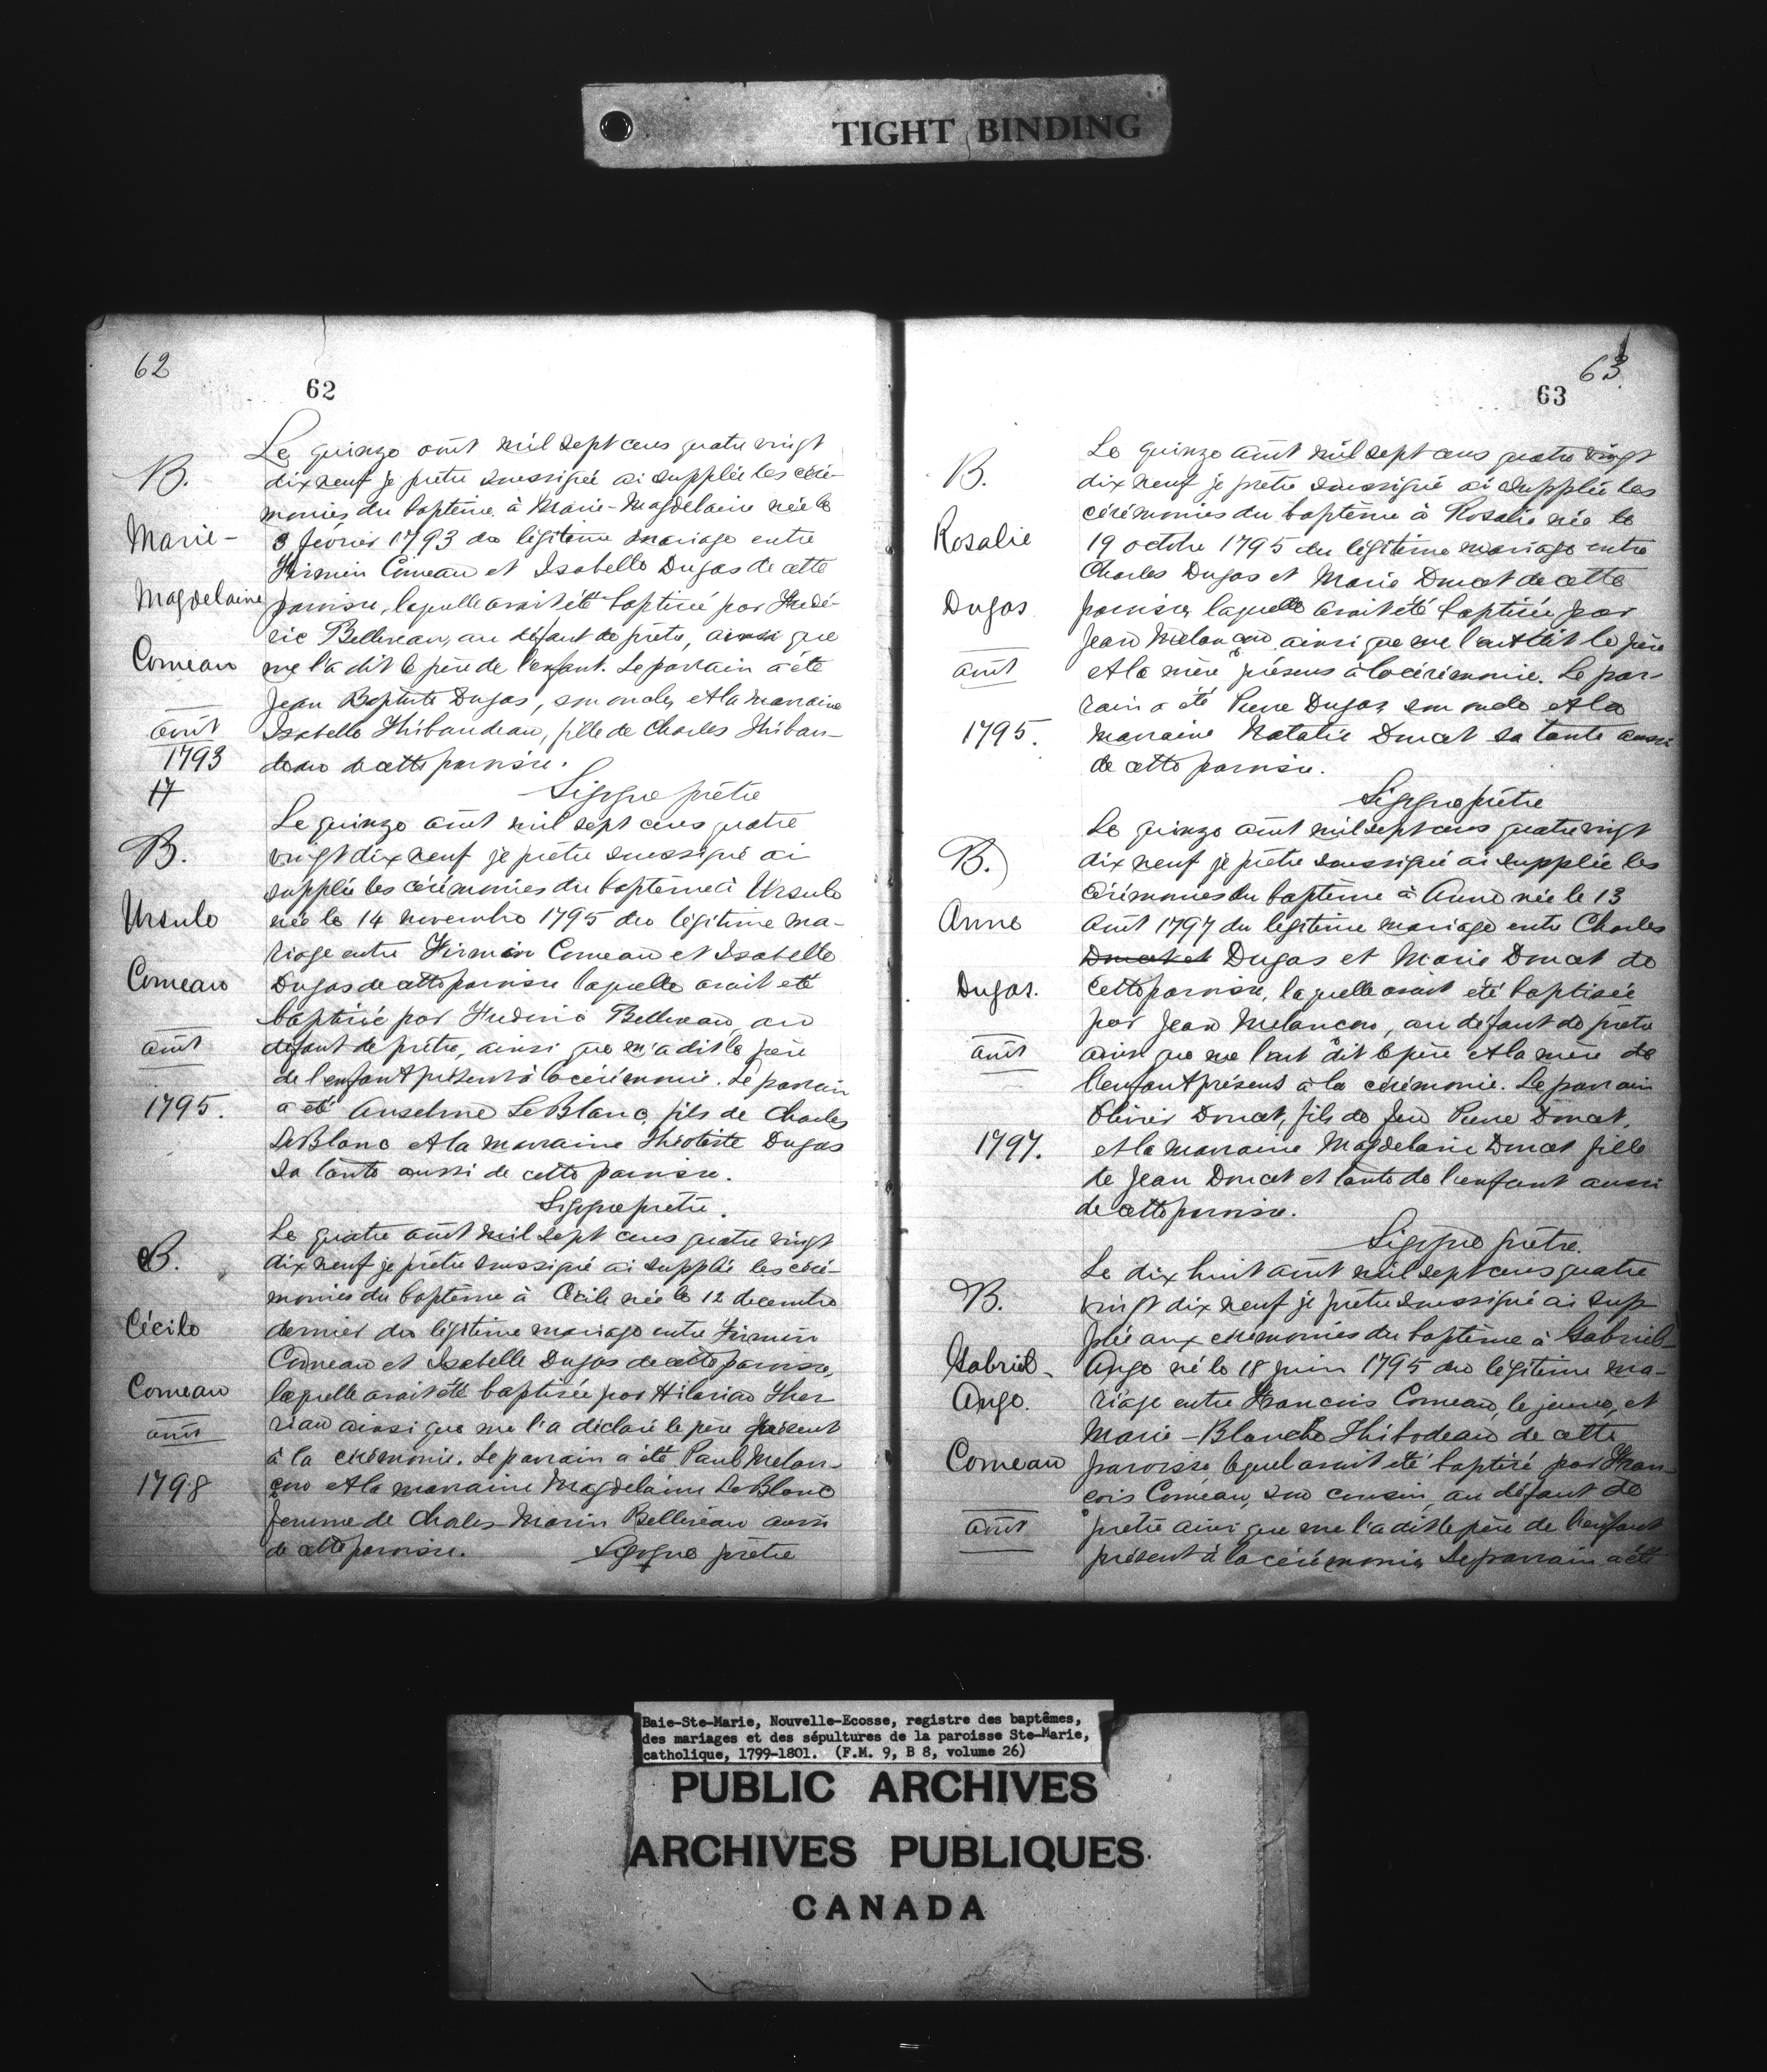 TIGHT BINDING
62
62
Le quinze août mil sept cens quatre vingt
B.
dix neuf je prêtre soussigné ai supplée les céré-
monies du baptême à Marie-Magdelaine née le
Marie-
3 février 1793 du légitime mariage entre
Firmin Comeau et Isabelle Dugas de cette
Magdelaine
paroisse, laquelle avait été baptisée par Frédé-
ric Belliveau, au défaut de prêtre, ainsi que
Comeau
me l'a dit le père de l'enfant. Le parrain a été
Jean Baptiste Dugas, son oncle, et la marraine
août
Isabelle Thibaudeau, fille de Charles Thibau-
1793
deau de cette paroisse.
17
Sigogne prêtre
Le quinze août mil sept cens quatre
B.
vingt dix neuf je prêtre soussigné ai
supplée les cérémonies du baptême à Ursule
Ursule
née le 14 novembre 1795 du légitime ma-
riage entre Firmin Comeau et Isabelle
Comeau
Dugas de cette paroisse laquelle avait été
baptisée par Frederic Belliveau, au
août
défaut de prêtre, ainsi que m'a dit le père
de l'enfant présent à la cérémonie. Le parrain
1795.
a été Anselme LeBlanc, fils de Charles
LeBlanc et la marraine Théotiste Dugas
sa tante aussi de cette paroisse.
Sigogne prêtre.
Le quatre août mil sept cens quatre vingt
B.
dix neuf je prêtre soussigné ai supplée les céré-
monies du baptême à Cécile née le 12 decembre
Cécile
dernier du légitime mariage entre Firmin
Comeau et Isabelle Dugas de cette paroisse,
Comeau
laquelle avait été baptisée par Hilarian Ther
août
riau ainsi que me l'a déclaré le père présent
à la cérémonie. Le parrain a été Paul Melan-
1798
çon et la marraine Magdelaine LeBlanc
femme de Charles-Marin Belliveau aussi
de cette paroisse. Sigogne prêtre
63
63
Le quinze août mil sept cens quatre vingt
B.
dix neuf je prêtre soussigné ai supplée les
cérémonies du baptême à Rosalie née le
Rosalie
19 octobre 1795 du légitime mariage entre
Charles Dugas et Marie Doucet de cette
Dugas
paroisse, laquelle avait été baptisée par
Jean Melançon ainsi que me l'ont dit le père
août
et la mère présens à la cérémonie. Le par-
rain a été Pierre Dugas son oncle et la
1795.
marraine Natalie Doucet sa tante aussi
de cette paroisse.
Sigogne prêtre
Le quinze août mil sept cens quatre vingt
B.
dix neuf je prêtre soussigné ai supplée les
Cérémonies du baptême à Anne née le 13
Anne
août 1797 du légitime mariage entre Charles
Doucet et Dugas et Marie Doucet de
Dugas.
cette paroisse, laquelle avait été baptisée
par Jean Melancon, au défaut de prêtre
août
ainsi que me l'ont dit le père et la mère de
l'enfant présens à la cérémonie. Le parrain
Olivier Doucet, fils de feu Pierre Doucet,
1797.
et la marraine Magdelaine Doucet fille
de Jean Doucet et tante de l'enfant aussi
de cette paroisse.
Sigogne prêtre.
Le dix huit août mil sept cens quatre
B.
vingt dix neuf je prêtre soussigné ai sup-
plée aux cérémonies du baptême à Gabriel-
Gabriel-
Ange né le 18 juin 1795 du légitime ma-
Ange.
riage entre Francois Comeau, le jeune, et
Marie-Blanche Thibodeau de cette
Comeau
paroisse, lequel avait été baptisé par Fran-
çois Comeau, son cousin, au défaut de
août
prêtre ainsi que me l'a dit le père de l'enfant
présent à la cérémonie. Le parrain a été
Baie-Ste-Marie, Nouvelle-Ecosse, registre des baptêmes,
des mariages et des sépultures de la paroisse Ste-Marie,
catholique, 1799-1801. (F.M. 9, B 8, volume 26)
PUBLIC ARCHIVES
ARCHIVES PUBLIQUES
CANADA